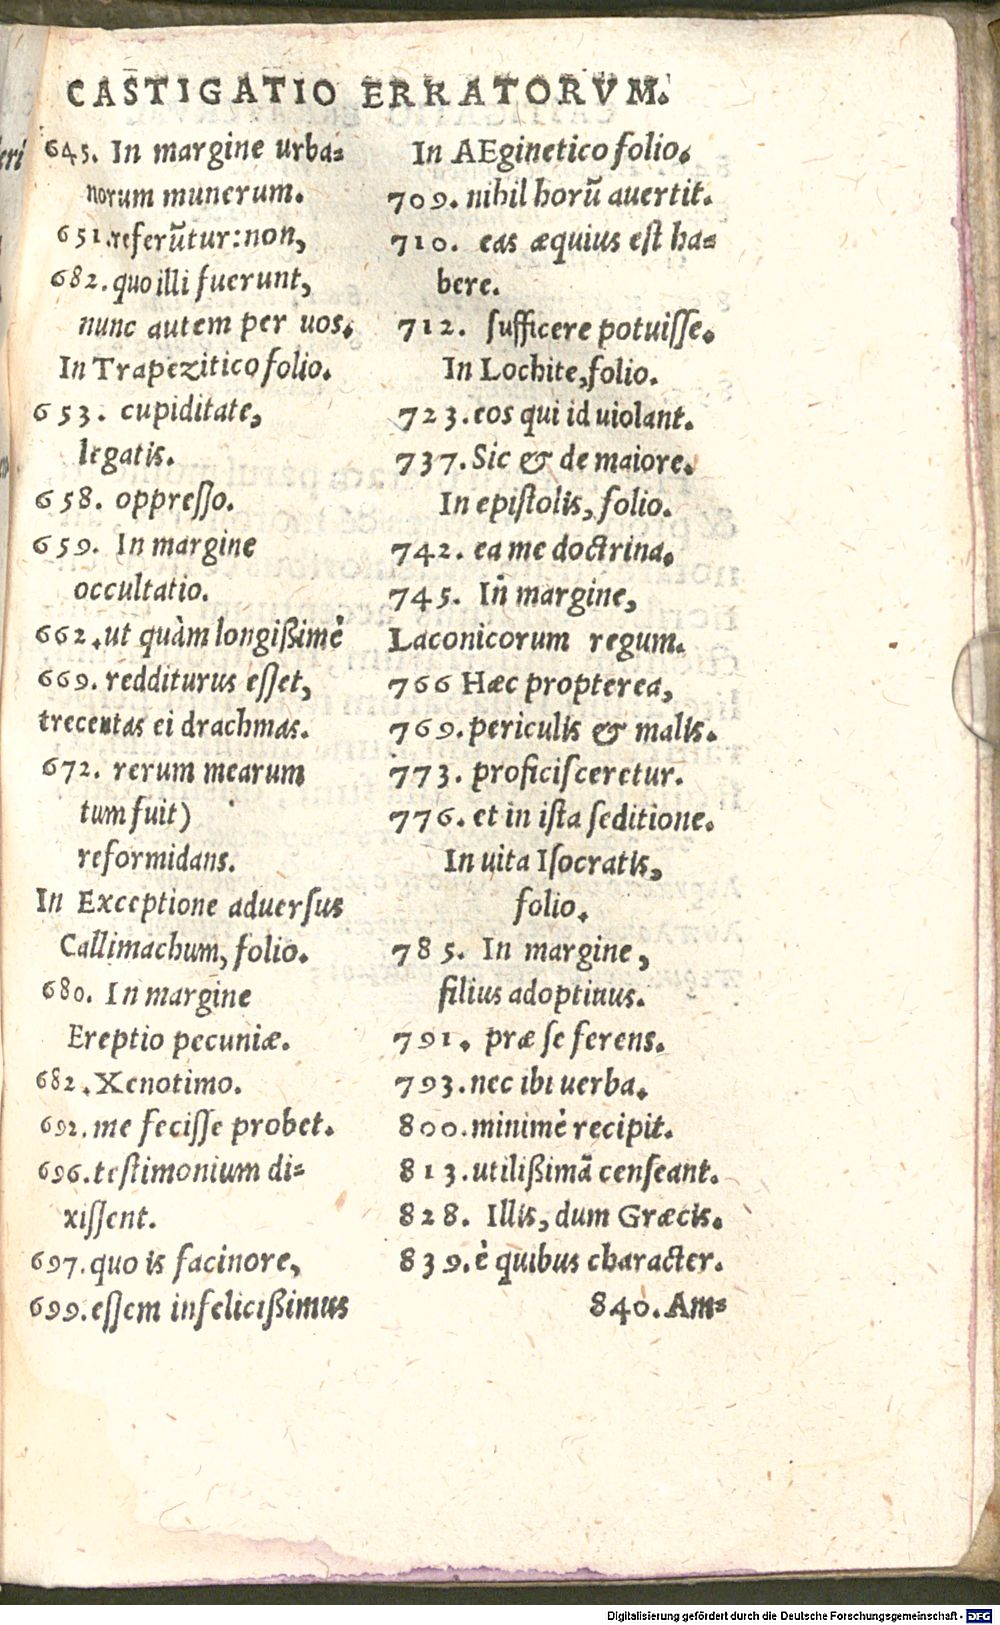 CASTIGATIO ERRATORVM.
645. In margine urba-
norum munerum.
651. referūtur: non,
682. quo illi fuerunt,
nunc autem per uos.
In Trapezitico folio.
653. cupiditate,
legatis.
658. oppresso.
659. In margine
occultatio.
662. ut quàm longißimè
669. redditurus esset,
trecentas ei drachmas.
672. rerum mearum
tum fuit)
reformidans.
In Exceptione aduersus
Callimachum, folio.
680. In margine
Ereptio pecuniæ.
682. Xenotimo.
692. me fecisse probet.
696. testimonium di-
xissent.
697. quo is facinore,
699. essem infelicißimus
In AEginetico folio.
709. nihil horū auertit.
710. eas æquius est ha-
bere.
712. sufficere potuisse.
In Lochite, folio.
723. eos qui id uiolant.
737. Sic & de maiore.
In epistolis, folio.
742. ea me doctrina.
745. In margine,
Laconicorum regum.
766 Hæc propterea,
769. periculis & malis.
773. proficisceretur.
776. et in ista seditione.
In uita Isocratis,
folio.
785. In margine,
filius adoptiuus.
791. præ se ferens.
793. nec ibi uerba.
800. minimè recipit.
813. utilißimā censeant.
828. Illis, dum Græcis.
839. è quibus character.
840. Am-
eri
Digitalisierung gefördert durch die Deutsche Forschungsgemeinschaft - DFG